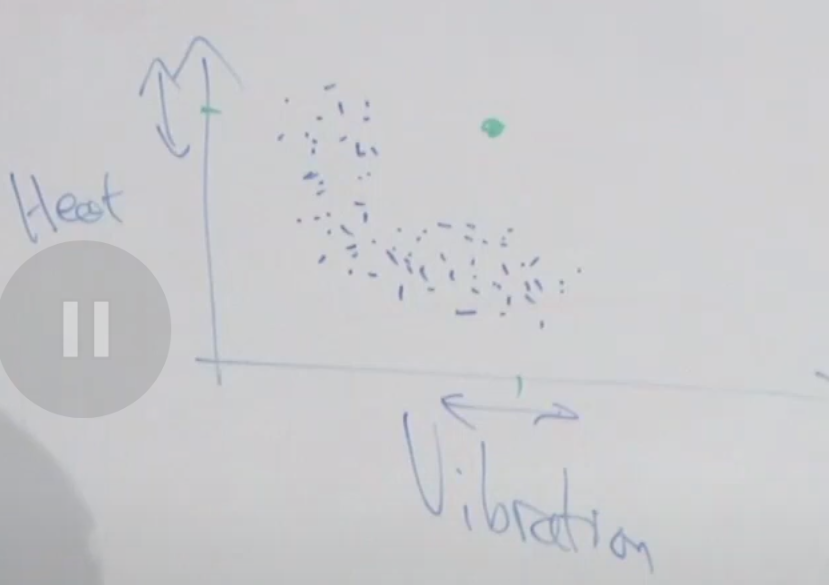 Heat
Vibration